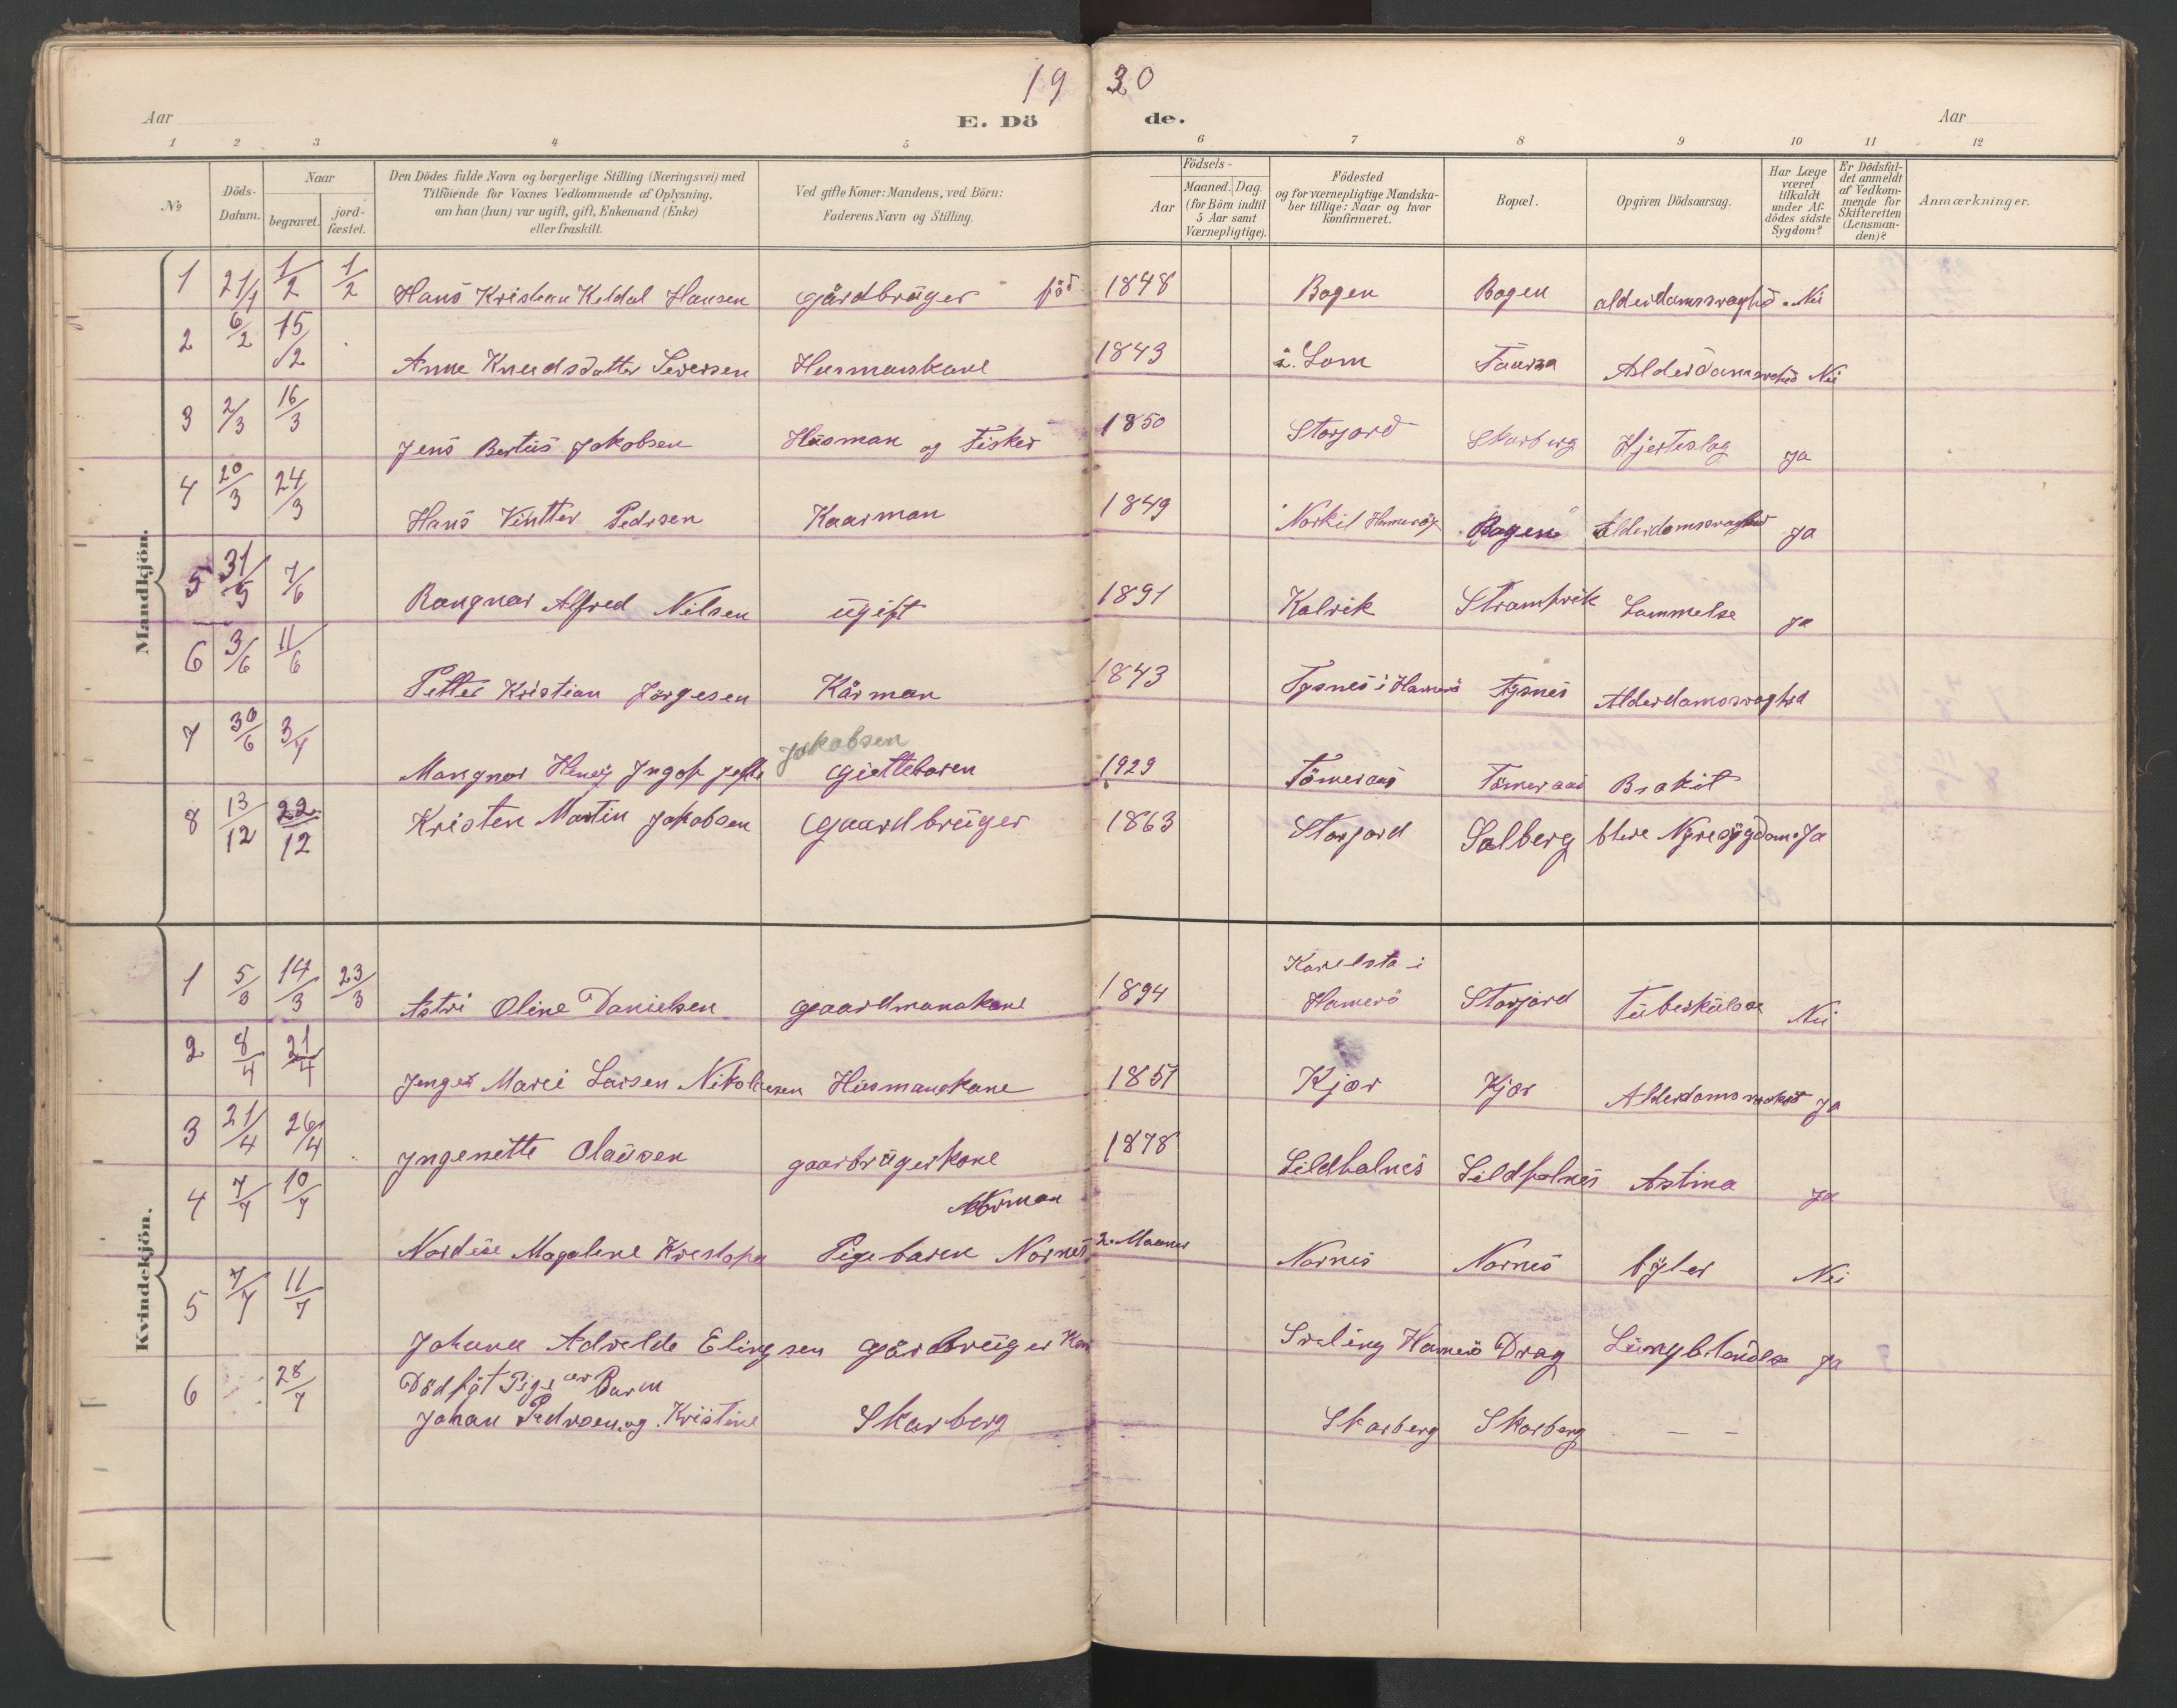 19 30
Aar E. Dö de. Aar
1 2 3 4 5 6 7 8 9 10 11 12
№ Döds-Datum. Naar begravet. jord-fæstet. Den Dödes fulde Navn og borgerlige Stilling (Næringsvei) med Tilföiende for Voxnes Vedkommende af Oplysning, om han (hun) var ugift, gift, Enkemand (Enke) eller fraskilt. Ved gifte Koner: Mandens, ved Börn: Faderens Navn og Stilling. Födsels- Aar Maaned. Dag. (for Börn indtil 5 Aar samt Værnepligtige). Födested og for værnepligtige Mandskaber tillige: Naar og hvor konfirmeret. Bopæl. Opgiven Dödsaarsag. Har Læge været tilkaldt under Afdödes sidste Sygdom? Er Dödsfaldet anmeldt af Vedkommende for Skifteretten (Lensmanden)? Anmærkninger.
Mandkjön.
1 21/1 1/2 1/2 Hans Kristian Keldal Hansen gårdbrüger föd 1848 Bogen Bogen alderdomssvaghed Nei
2 6/2 15/2 Anne Knudsdatter Seversen Husmanskone 1843 i Lom Taurra Alderdomsvched Nei
3 2/3 16/3 Jens Bertüs Jakobsen Hüsman og Fisker 1850 Storjord Skarberg Hjerteslag Ja
4 20/3 24/3 Hans Vintter Pedrsen Kaarman 1849 Norkil Hamerøy Bogen Alderdomssvaghed Ja
5 31/5 7/6 Rangnar Alfred Nilsen ügift 1891 Kalvik Strømhvik Lammelse Ja
6 3/6 11/6 Petter Kristian Jørgesen Kårman 1843 Tysnes i Hamerö Tysnes Alderdomssvaghed
7 30/6 3/7 Mangnor Henry Ingolf Jakobsen Giettebaren 1929 Tömeraas Tömeraas Brokit
8 13/12 22/12 Kristen Martin Jakobsen Gaardbrüger 1863 Storjord Salberg blere Nyresÿgdom Ja
Kvindekjön.
1 5/3 14/3 23/3 Astri Oline Danielsen gaardmanskone 1894 Karelsta i Hamerö Storjord Tüberkülose Nei
2 8/4 21/4 Jenger Marei Larsen Nikolaisen Hüsmanskone 1851 Kjær Kjær Alderdomssvakhet Ja
3 21/4 26/4 Jngenette Olaüsen gaarbrügerkone 1878 Sildhalnes Sildpolnes Astma Ja
4 7/7 10/7 Nordise Magalene Krestofa Pigebaren Norman Nornes 2. Maaner Nornes Nornes Nei
5 7/7 11/7 Johana Adrelde Elingsen gårdbrüger Kon Sveling Hamerö Drag Lüngbetendelse Ja
6 28/7 Dödfÿt Pige Barn av
Johan Pedrsen og Kristine Skarberg Skarberg Skarberg — —